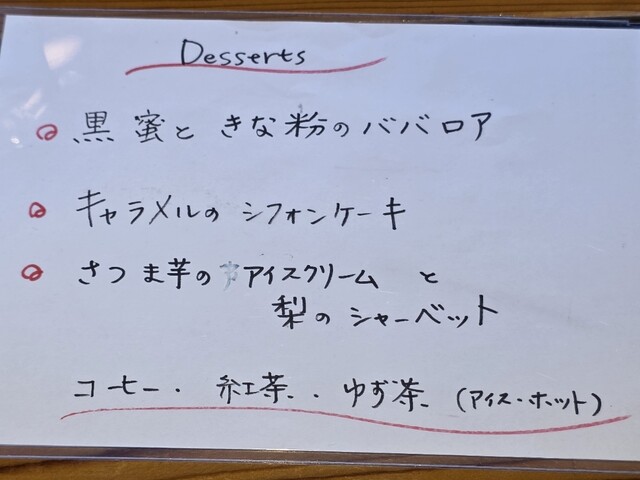 Desserts
黒蜜ときな粉のババロア
キャラメルのシフォンケーキ
さつま芋のアイスクリームと
梨のシャーベット
コーヒー・紅茶・ゆず茶(アイス・ホット)